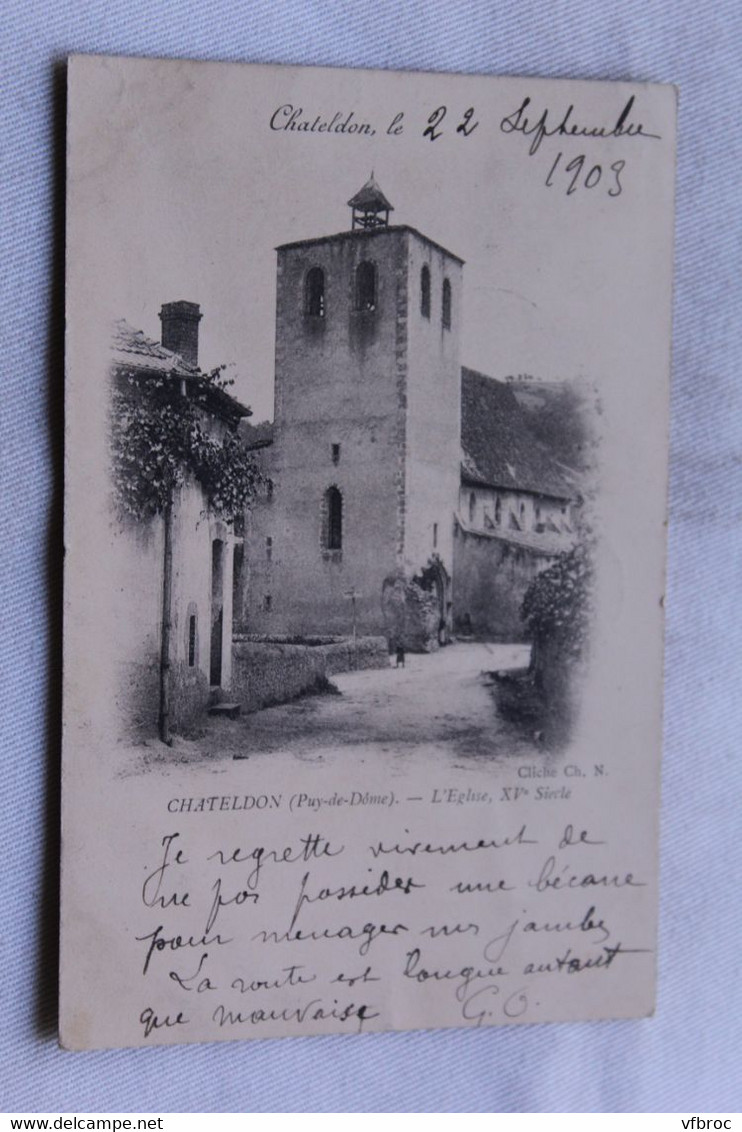 Chateldon, le 22 Septembre
1903
Cliche Ch. N.
CHATELDON (Puy-de-Dôme). — L'Eglise, XVe Siecle
Je regrette vivement de
ne pas posséder une bécane
pour menager mes jambes
La route est longue autant
que mauvaise G. O.
vfbroc
www.delcampe.net